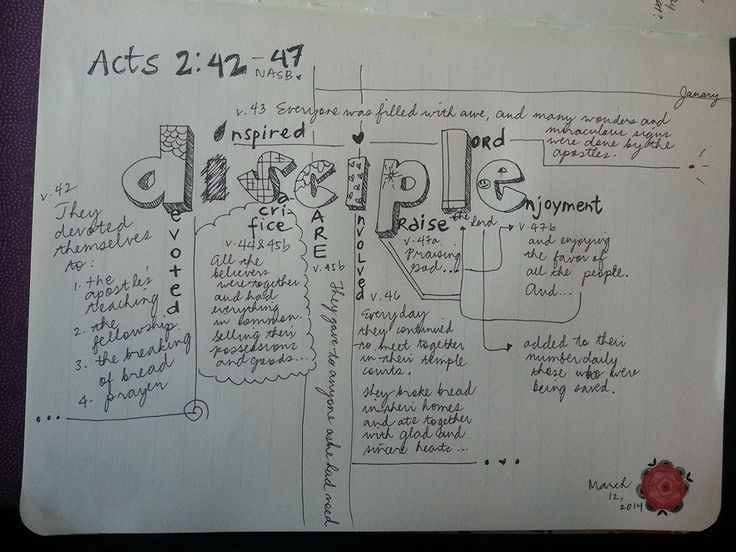 Acts 2:42-47
NASB
Janary
v.43 Everyone was filled with awe, and many wonders and
miraculous signs
were done by the
apostles.
inspired
Lord
disciple
Devoted
Sacri-
fice
CARE
Involved
Praise the Lord
Enjoyment
v.42
They
devoted
themselves
to:
1. the
apostles'
teaching
2. the
fellowship.
3. the breaking
of bread
4. prayer
v.44&45b
All the
believers
were together
and had
everything
in common.
selling their
possessions
and goods...
v.45b
They gave to anyone as he had need
v.46
Everyday
they continued
to meet together
in their temple
courts.
They broke bread
in their homes
and ate together
with glad and
sincere hearts...
v.47a
Praising
God...
v.47b
and enjoying
the favor of
all the people.
And...
added to their
number daily
those who were
being saved.
March
12,
2014